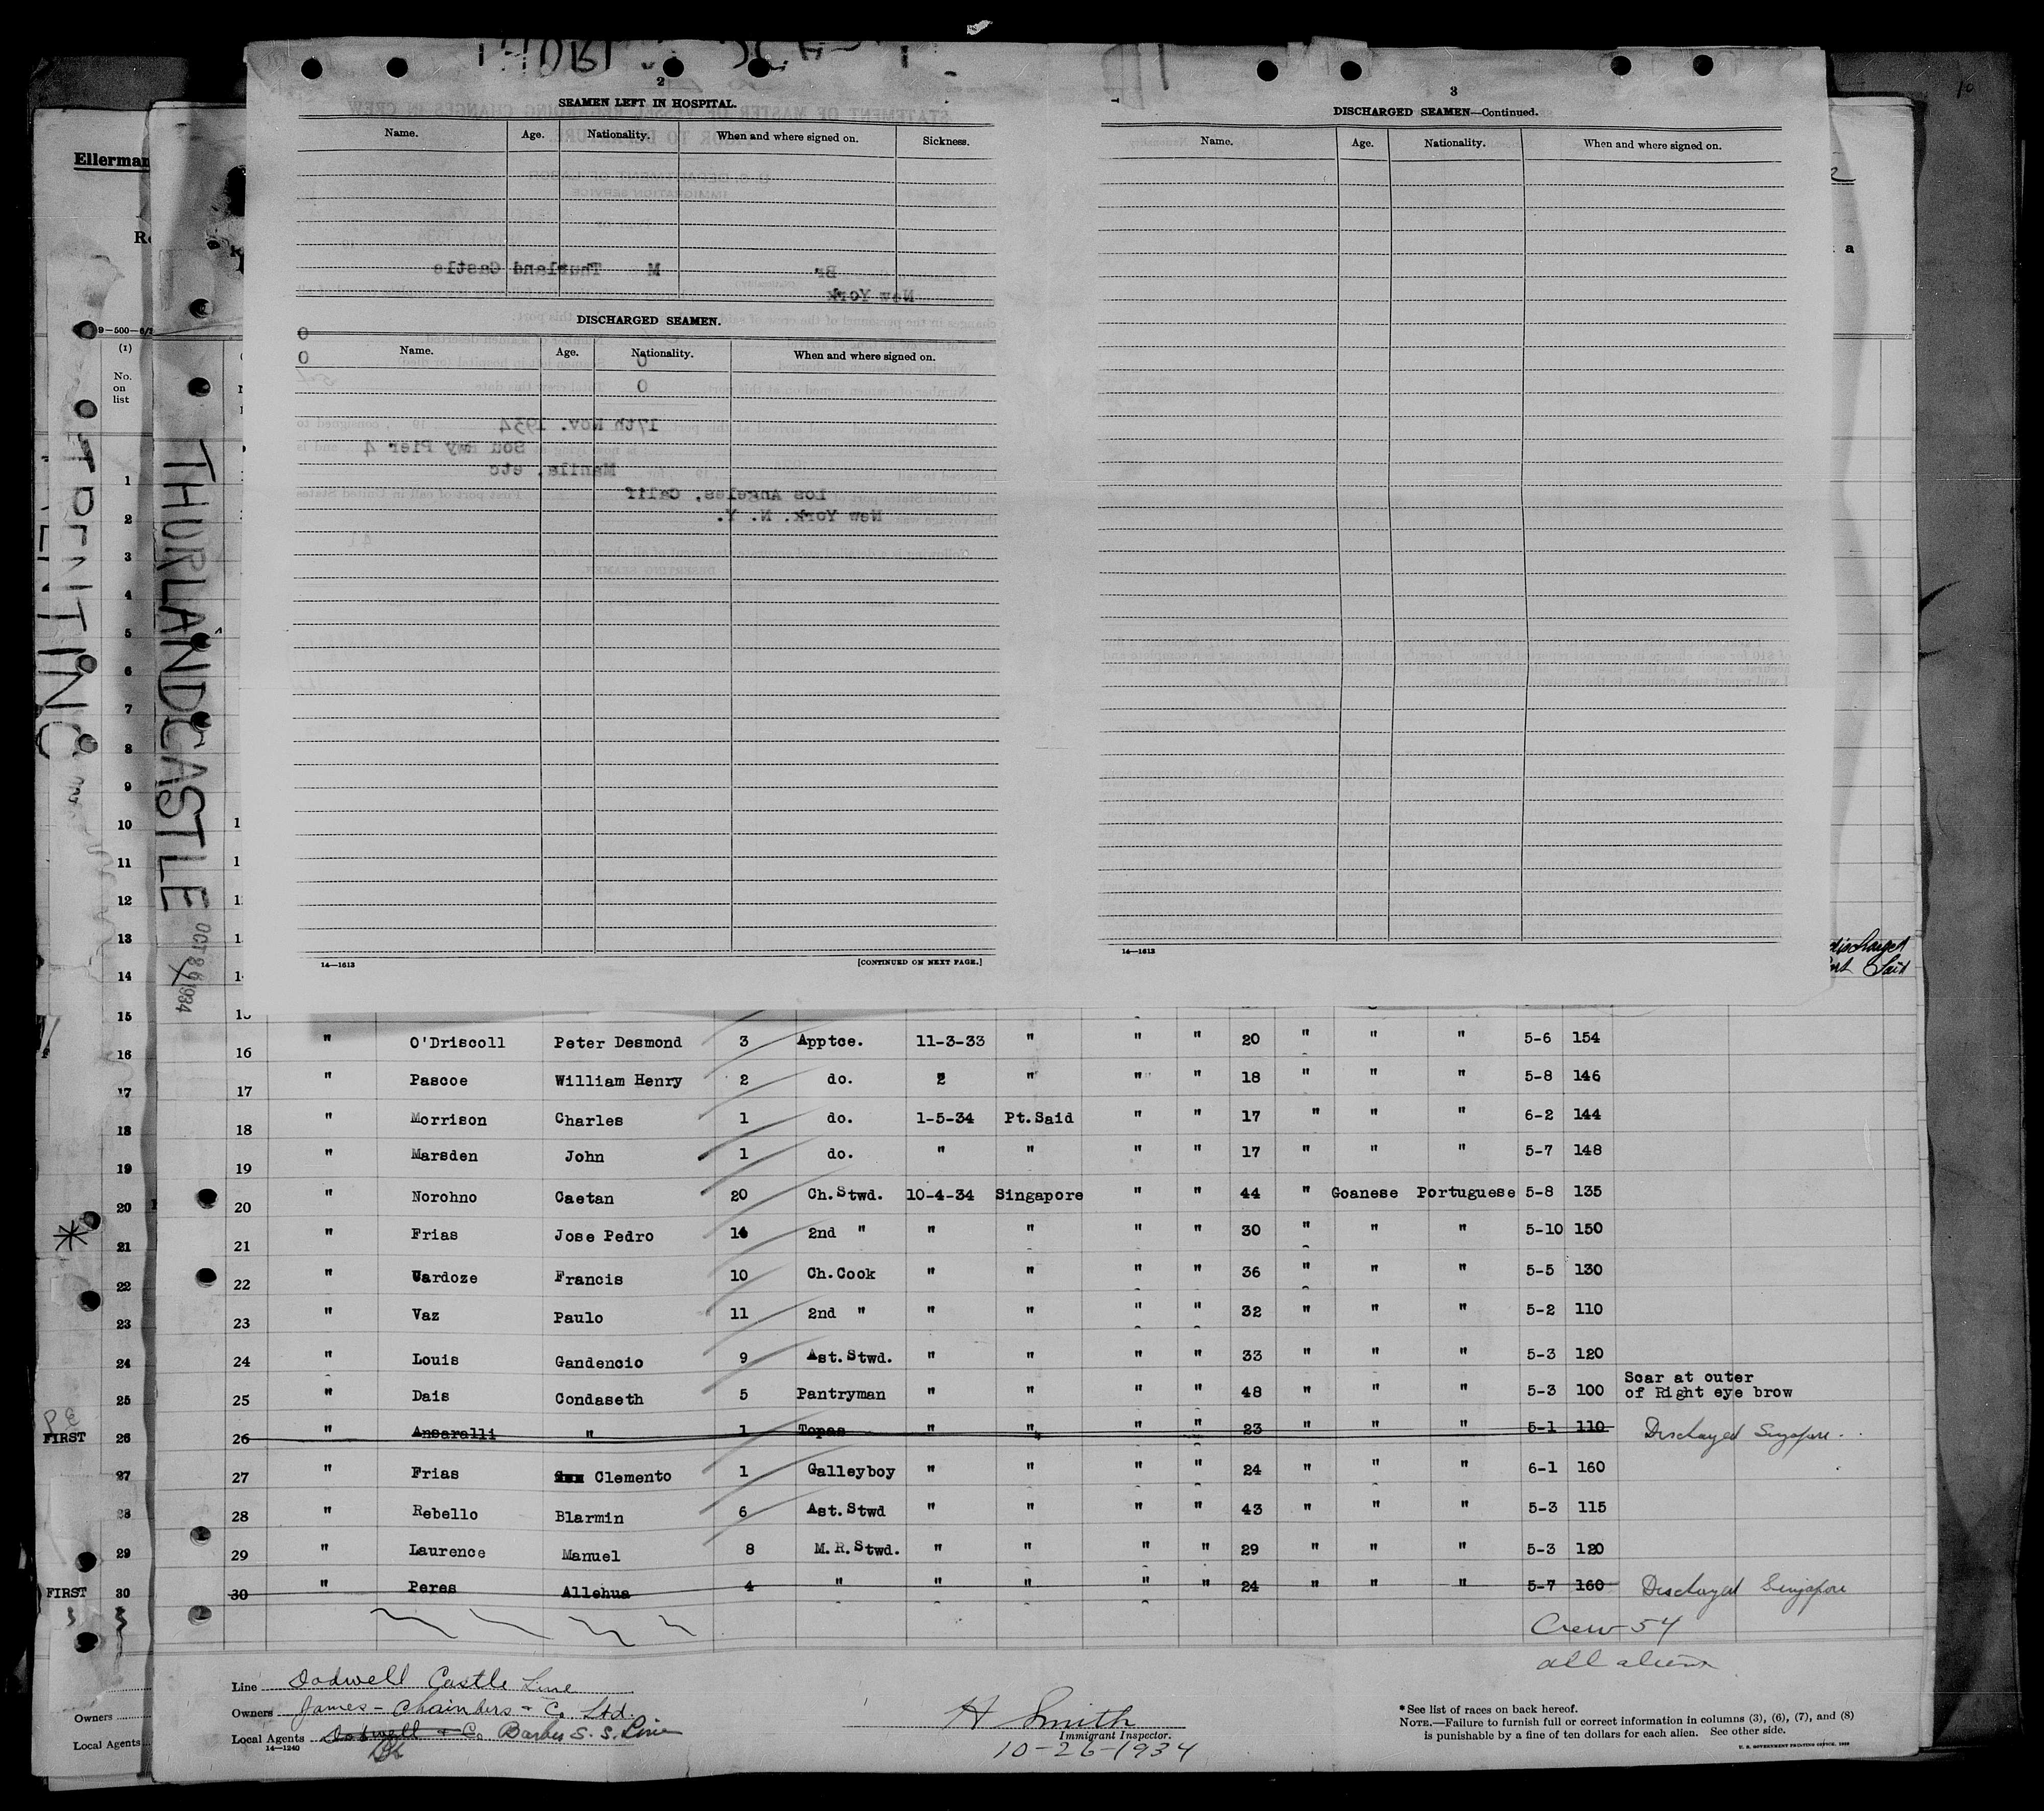 2
SEAMEN LEFT IN HOSPITAL.
Name. Age. Nationality. When and where signed on. Sickness.
DISCHARGED SEAMEN.
Name. Age. Nationality. When and where signed on.
14—1613
[CONTINUED ON NEXT PAGE.]
3
DISCHARGED SEAMEN—Continued.
Name. Age. Nationality. When and where signed on.
14—1613
M Thurland Castle
Br
New York
0
0
0
0
17th Nov. 1934
Sou Bwy Pier 4
Manila, etc
Los Angeles, Calif
New York. N. Y.
Ellerman
(1)
No.
on
list
1
2
3
4
5
6
7
8
9
10
11
12
13
14
15
16
17
18
19
20
21
22
23
24
25
FIRST 26
27
28
29
FIRST 30
Owners
Local Agents
THURLAND CASTLE
OCT 26 1934
discharged
Port Said
16 " O'Driscoll Peter Desmond 3 Apptce. 11-3-33 " " " 20 " " " 5-6 154
17 " Pascoe William Henry 2 do. " " " " 18 " " " 5-8 146
18 " Morrison Charles 1 do. 1-5-34 Pt.Said " " 17 " " " 6-2 144
19 " Marsden John 1 do. " " " " 17 " " " 5-7 148
20 " Norohno Caetan 20 Ch.Stwd. 10-4-34 Singapore " " 44 " Goanese Portuguese 5-8 135
21 " Frias Jose Pedro 14 2nd " " " " " 30 " " " 5-10 150
22 " Vardoze Francis 10 Ch.Cook " " " " 36 " " " 5-5 130
23 " Vaz Paulo 11 2nd " " " " " 32 " " " 5-2 110
24 " Louis Gandencio 9 Ast.Stwd. " " " " 33 " " " 5-3 120
25 " Dais Condaseth 5 Pantryman " " " " 48 " " " 5-3 100 Scar at outer
of Right eye brow
26 " Ansaralli " 1 Topas " " " " 23 " " " 5-1 110 Discharged Singapore.
27 " Frias Clemento 1 Galleyboy " " " " 24 " " " 6-1 160
28 " Rebello Blarmin 6 Ast.Stwd " " " " 43 " " " 5-3 115
29 " Laurence Manuel 8 M.R.Stwd. " " " " 29 " " " 5-3 120
30 " Peres Allehua 4 " " " " " 24 " " " 5-7 160 Discharged Singapore
Crew 54
all aliens
Line Dodwell Castle Line
Owners James - Chambers - Co Ltd.
Local Agents Dodwell & Co Barber S. S. Line
14—1240
H Smith
Immigrant Inspector.
10-26-1934
* See list of races on back hereof.
NOTE.—Failure to furnish full or correct information in columns (3), (6), (7), and (8)
is punishable by a fine of ten dollars for each alien. See other side.
U. S. GOVERNMENT PRINTING OFFICE